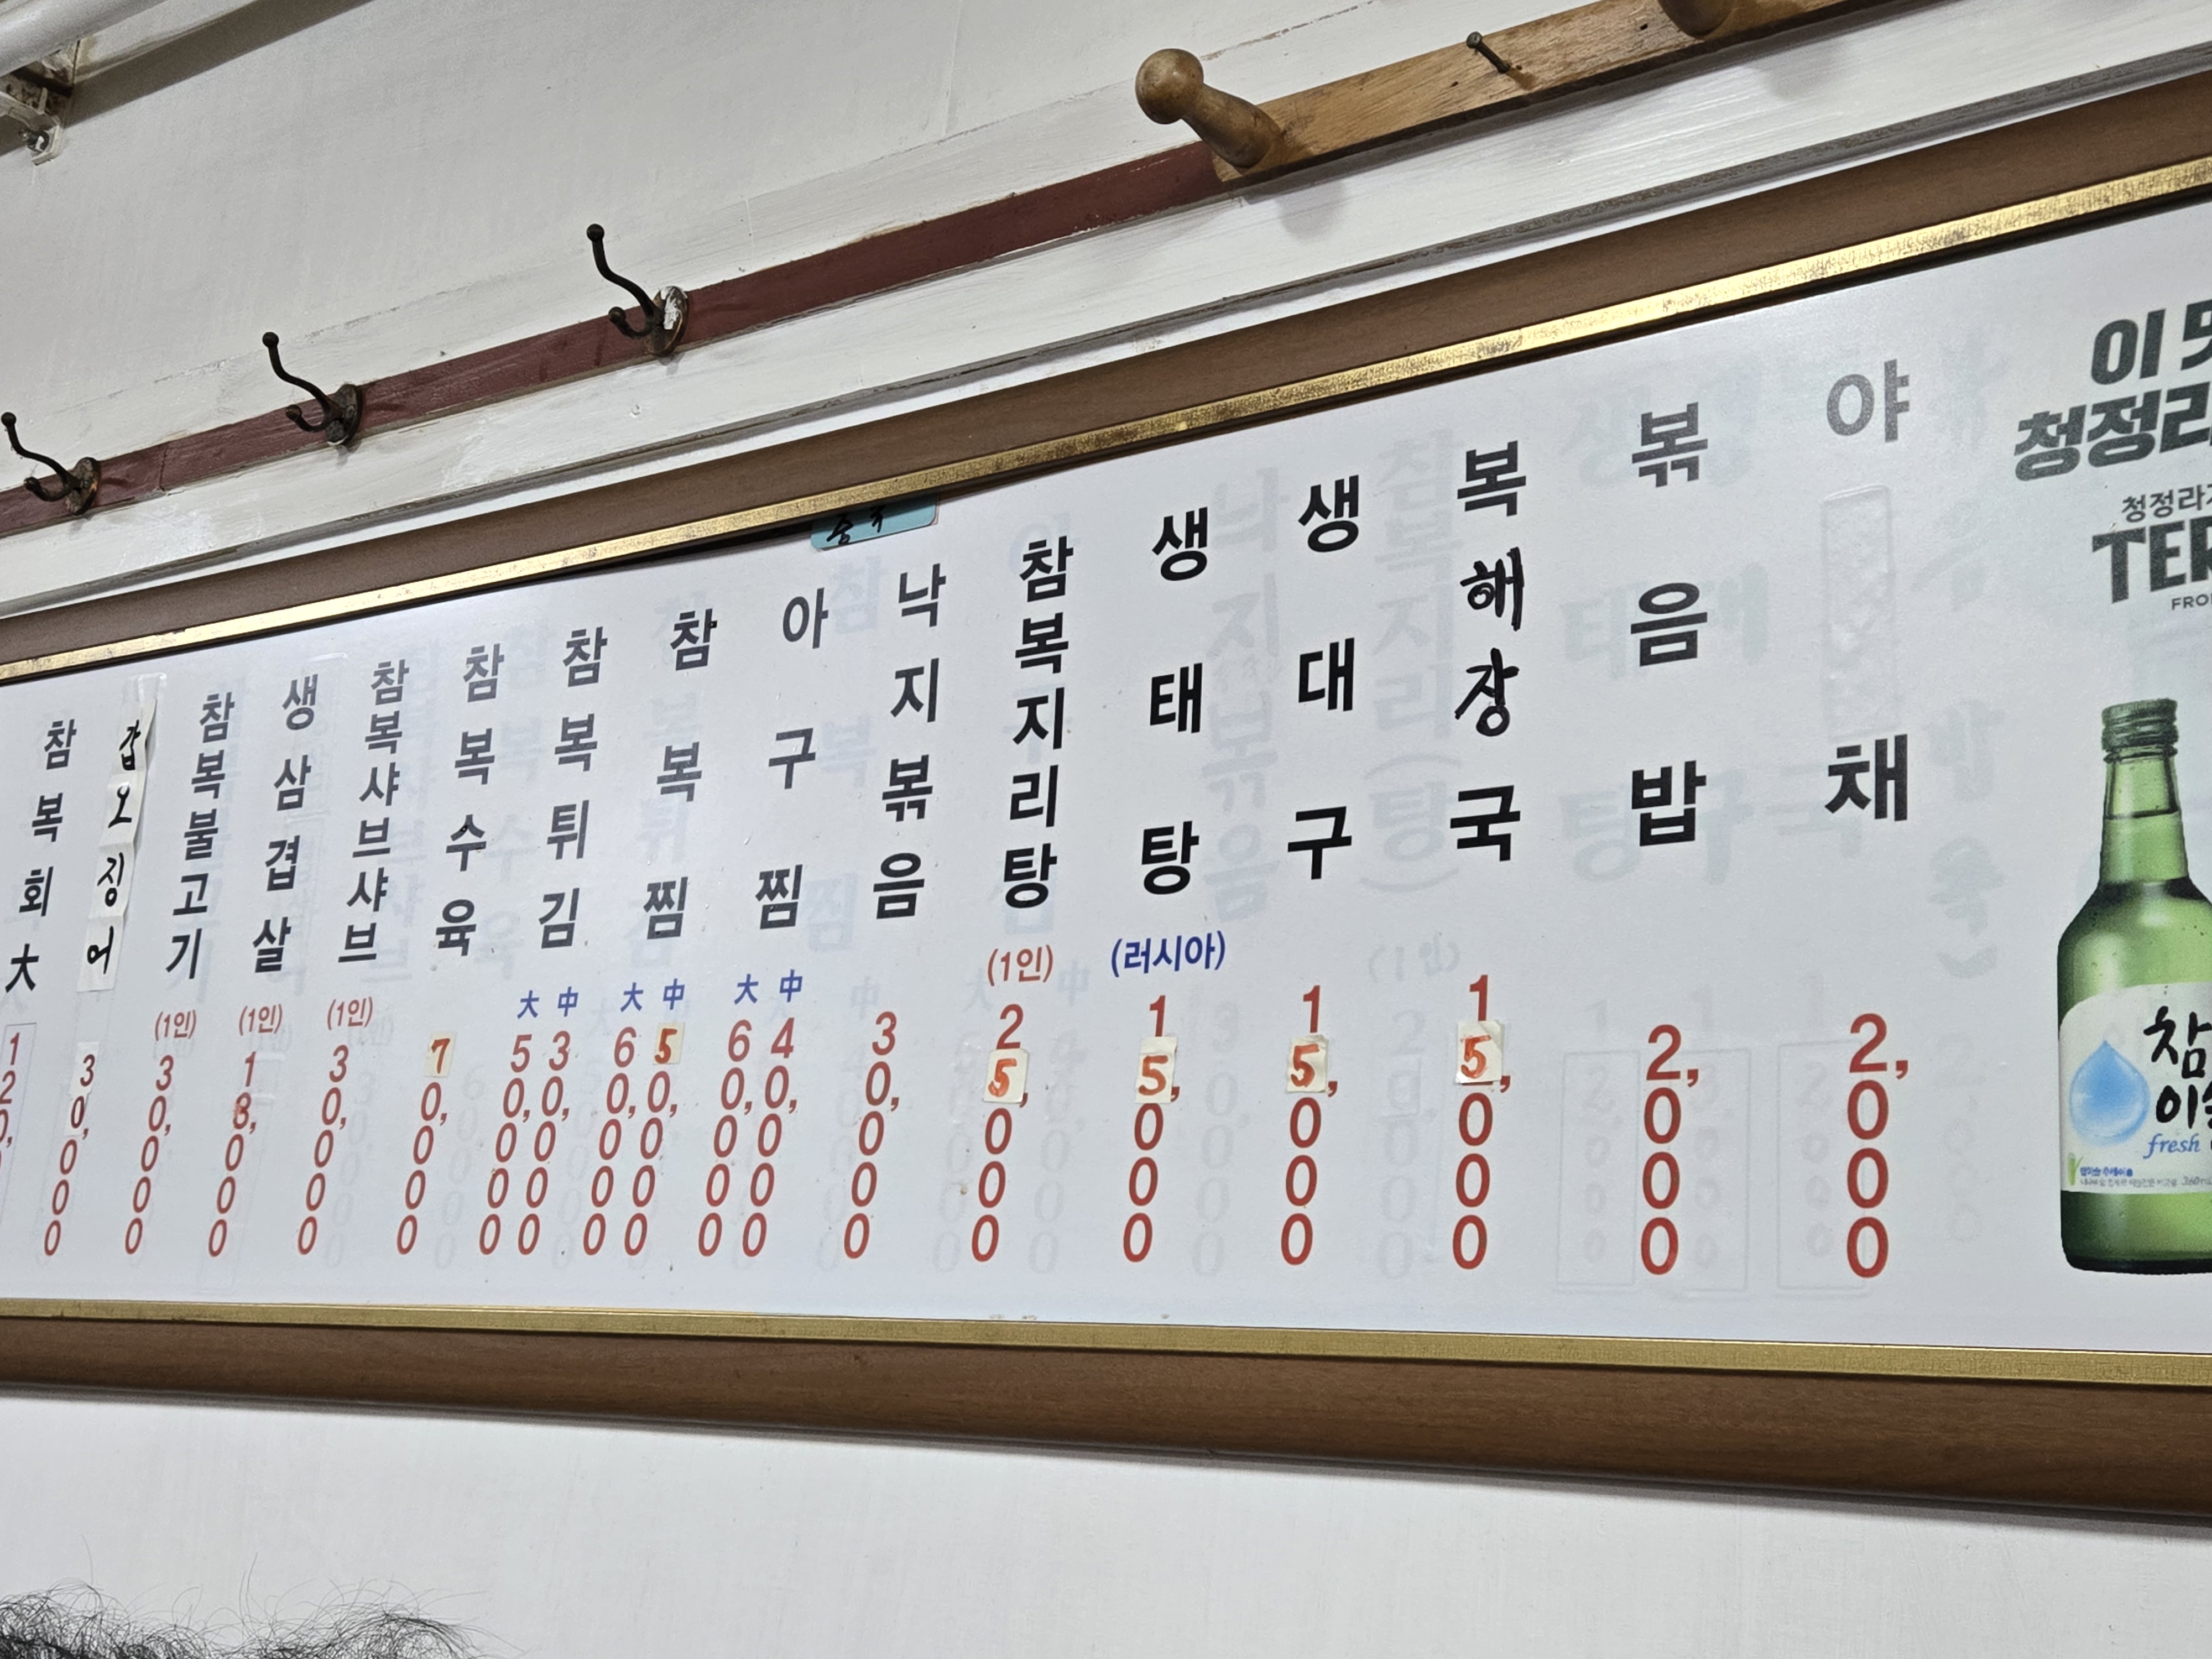 참복회 大 120,000
갑오징어 30,000
참복불고기 (1인) 30,000
생삼겹살 (1인) 18,000
참복샤브샤브 (1인) 30,000
참복수육 70,000
참복튀김 大 50,000 中 30,000
참복찜 大 60,000 中 50,000
아구찜 大 60,000 中 40,000
낙지볶음 30,000
참복지리탕 (1인) 25,000
생태탕 (러시아) 15,000
생대구 15,000
복해장국 15,000
볶음밥 2,000
야채 2,000
이
청정라
청정라
TER
FRO
참
이슬
fresh